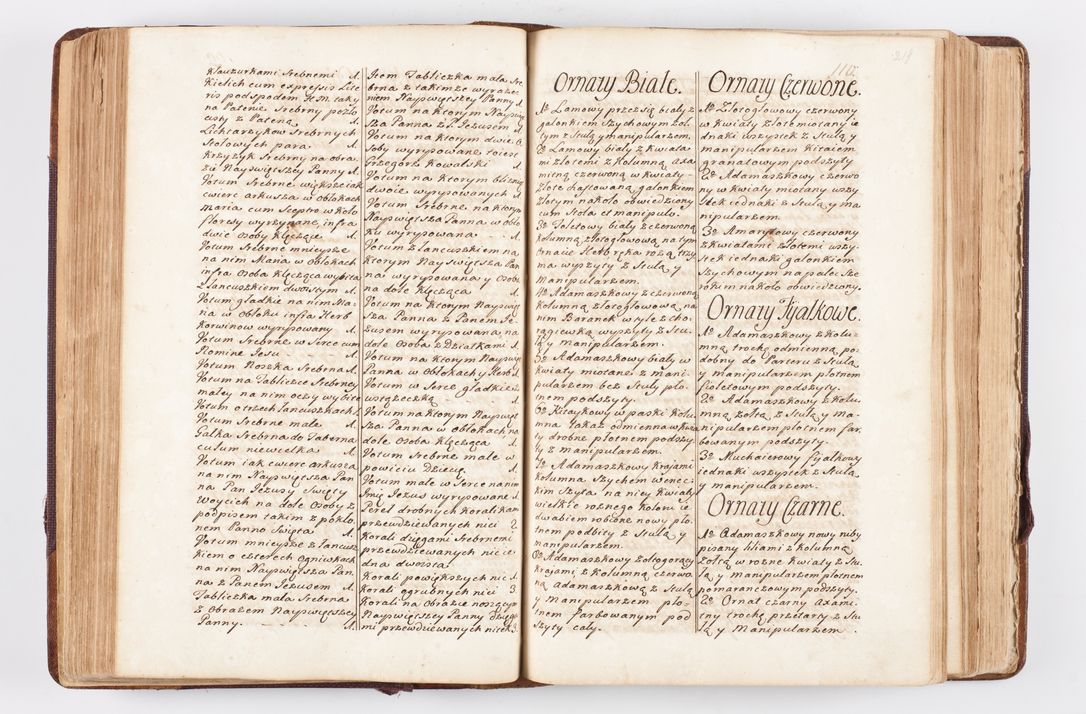 Klauzurkami srebnemi 1.
Kielich cum expressis Lite
ris pod spodem H.M. taky
na Patenie Srebrny pozło
cisty z Pateną 1.
Lichtarzykow Srebrnych
Stołowych para. 1.
Krzyżyk Srebrny na obra
zie Nayswiętszey Panny 1.
Votum Srebrne większe iak
cwierc arkusza w obłokach
Maria cum Sceptro w koło
floresy wyrzynane, infra
dwie osoby Klęczące 1.
Votum Srebrne mnieysze
na nim Maria w obłokach
infra osoba Klęcząca wybita
z Lancuszkiem dwoistym 1.
Votum gładkie na nim Ma
ria w obłoku infra Herb
Korwinow wyrysowany 1.
Votum Srebrne w Serce cum
Nomine Jesu 1.
Votum Noszka Srebrna 1.
Votum na Tabliczce Srebrney
małey na nim oczy wybite
Votum o trzech Lancuszkach 1.
Votum Srebrne małe 1.
Gałka Srebrna do Taberna
culum niewielka 1.
Votum iak cwierc arkusza
na nim Nayswiętsza Pan
na Pan Jezusy Swięty
Woyciech na dole Osoby z
podpisem takim z pokło
nem Panno Swięta 1.
Votum mnieysze z Lancusz
kiem o czterech Ogniwkach
na nim Nayswiętsza Pan
na z Panem Jezusem 1.
Tabliczka mała Srebrna
z Obrazem Nayswiętszey
Panny. 1.
Item Tabliczka mała Sre
brna z takimze wyraze
niem Nayswiętszey Panny 1.
Votum na Ktorym Nayswię
sza Panna z P. Jezusem 1.
Votum na Ktorym dwie o
soby wyrysowane toiest
Grzegorz Kowalski 1.
Votum na Ktorym bliznię
dwoie wyrysowanych 1.
Votum Srebrne na Ktorym
Nayswiętsza Panna w obło
ku wyrysowana 1.
Votum z Lancuszkiem na
Ktorym Nayswiętsza Pan
na wyrysowana y osoba
na dole Klęcząca 1.
Votum na Ktorym Nayswię
sza Panna z Panem Je
zusem wyrysowana na
dole osoba z Dziatkami 1.
Votum na Ktorym Nayswię
Panna w obłokach y Herb 1.
Votum w Serce gładkie z
wstążeczką 1.
Votum na Ktorym Nayswięt
sza Panna w obłokach na
dole osoba Klęcząca 1.
Votum Srebrne małe w
powiciu Dziecię 1.
Votum małe w Serce na nim
Imię Jezus wyrysowane 1.
Pereł drobnych Koralikam
przewdziewanych nici 2
Korali dłęgami Srebrnemi
przewdziewanych nic ie
dna dwoista 1.
Korali powiększych nic 1.
Korali ogrubnych nici 3.
Korali na Obrazie noszącym
Nayswiętszey Panny dłęga
mi przewdziewanych nitek 3.
218
110.
Ornaty Białe.
1o Lamowy przez się biały z
galonkiem Szychowym żoł
tym z Stułą y manipularzem.
2o Lamowy biały z kwiata
mi złotemi z Kolumną axa
mitną czerwoną w kwiaty
złote haftowaną, galonkiem
złotym nakoło obwiedziony
cum Stola et manipulo.
3o Toletowy biały z czerwoną
kolumną złotogłowową, na tym
Ornacie Herb ręka rożą trzy
ma wyszyty z Stułą y
Manipularzem.
4o Adamaszkowy z czerwoną
kolumną złotogłowową na
nim Baranek w tyle z cho
rągiewką wyszyty z Stu
łą y manipularzem.
5o Adamaszkowy biały w
kwiaty miotane z mani
pularzem bez Stuły pło
tnem podszyty.
6o Kitaykowy w paski Kolu
mna takaz odmienna w kwia
ty drobne płotnem podszy
ty z manipularzem.
7o Adamaszkowy Krajami
kolumna Szychem wenec
kim Szyta na niey Kwiaty
wielkie roznego Koloru ie
dwabiem robione nowy pło
tnem podbity z Stułą y
manipularzem.
8o Adamaszkowy żołtogorący
Krajami z Kolumną czerwo
ną adamaszkową z Stułą
y Manipularzem pło
tnem farbowanym pod
szyty cały.
Ornaty Czerwone.
1o Złotogłowowy czerwony
w kwiaty złote miotany ie
dnaki wszystek z Stułą y
manipularzem Kitaiem
granatowym podszyty
2o Adamaszkowy czerwo
ny w kwiaty miotany wszy
stek iednaki z Stułą y ma
nipularzem.
3o Amarytowy czerwony
z kwiatami złotemi wszy
stek iednaki galonkiem
Szychowym na palec Sze
rokim nakoło obwiedziony.
Ornaty Fijałkowe.
1o Adamaszkowy z Kolu
mną trochę odmienną po
dobny do Parteru z Stułą
y manipularzem płotnem
fioletowym podszyty.
2o Adamaszkowy z Kolu
mną żołtą z Stułą y ma
nipularzem płotnem far
bowanym podszyty.
3o Muchaierowy fijałkowy
iednaki wszystek z Stułą
y manipularzem.
Ornaty Czarne.
1o Adamaszkowy nowy niby
pisany liliami z Kolumną
żołtą w rozne kwiaty z Stu
łą y manipularzem płotnem
pomaranczowym podszyty.
2o Ornat czarny axami
tny trochę przetarty z Stu
łą y Manipularzem.